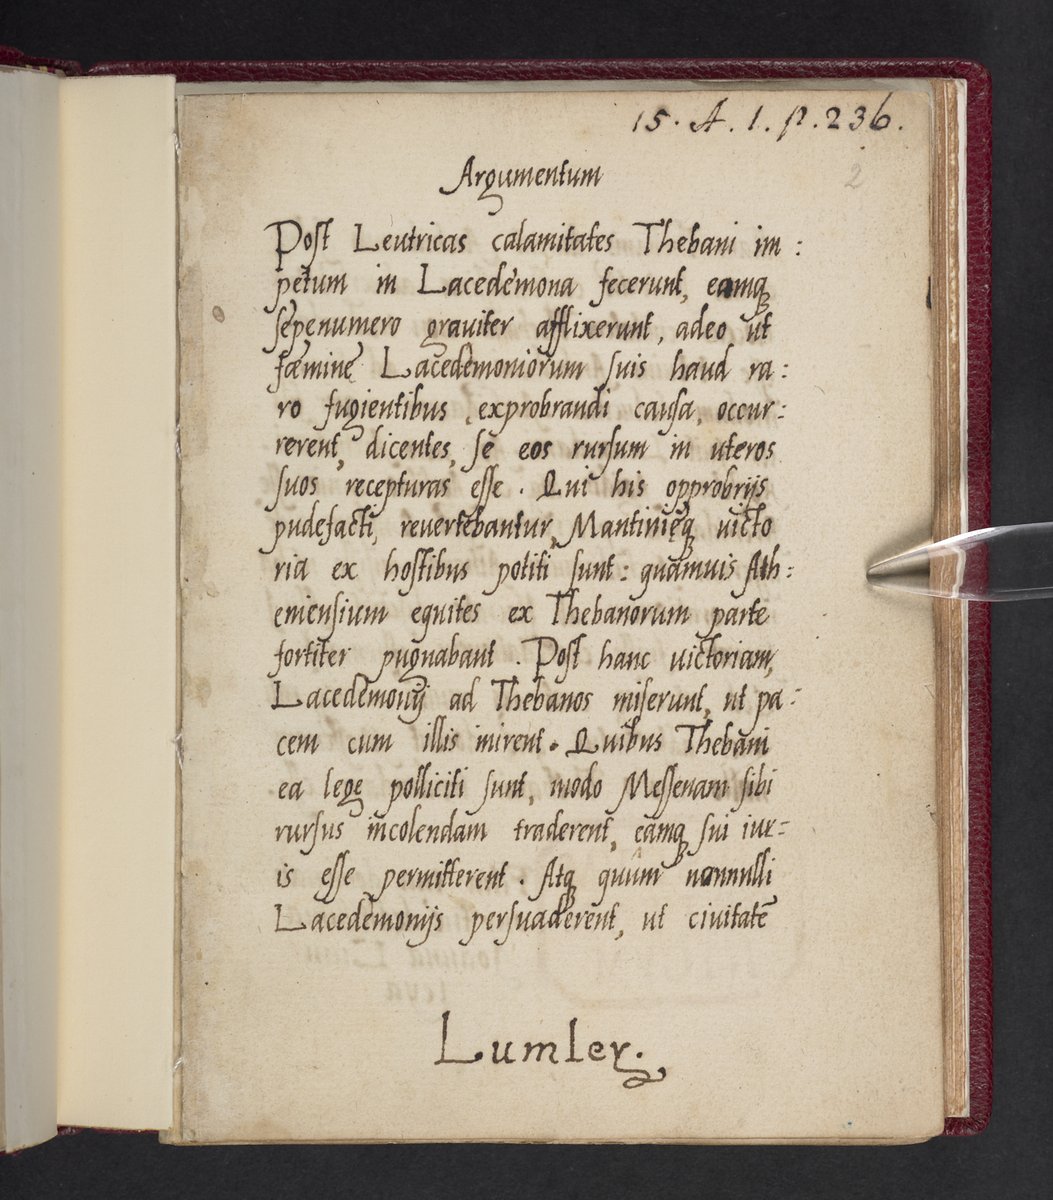 15. A. 1. p. 236.
2
Argumentum
Post Leutricas calamitates Thebani im :
petum in Lacedęmona fecerunt, eamq;
sępenumero grauiter afflixerunt, adeo, ut
fæminę Lacedęmoniorum suis haud ra :
ro fugientibus, exprobrandi causa, occur :
rerent, dicentes, se eos rursum in uteros
suos recepturas esse. Qui his opprobrijs
pudefacti, reuertebantur, Mantinięq; uicto
ria ex hostibus potiti sunt : quamuis Ath :
eniensium equites ex Thebanorum parte
fortiter pugnabant. Post hanc uictoriam,
Lacedęmonij ad Thebanos miserunt, ut pa :
cem cum illis inirent. Quibus Thebani
ea lege polliciti sunt, modo Messenam sibi
rursus incolendam traderent, eamq; sui iur =
is esse permitterent. Atq; quum nonnulli
Lacedęmonijs persuaderent, ut ciuitatē
Lumley.